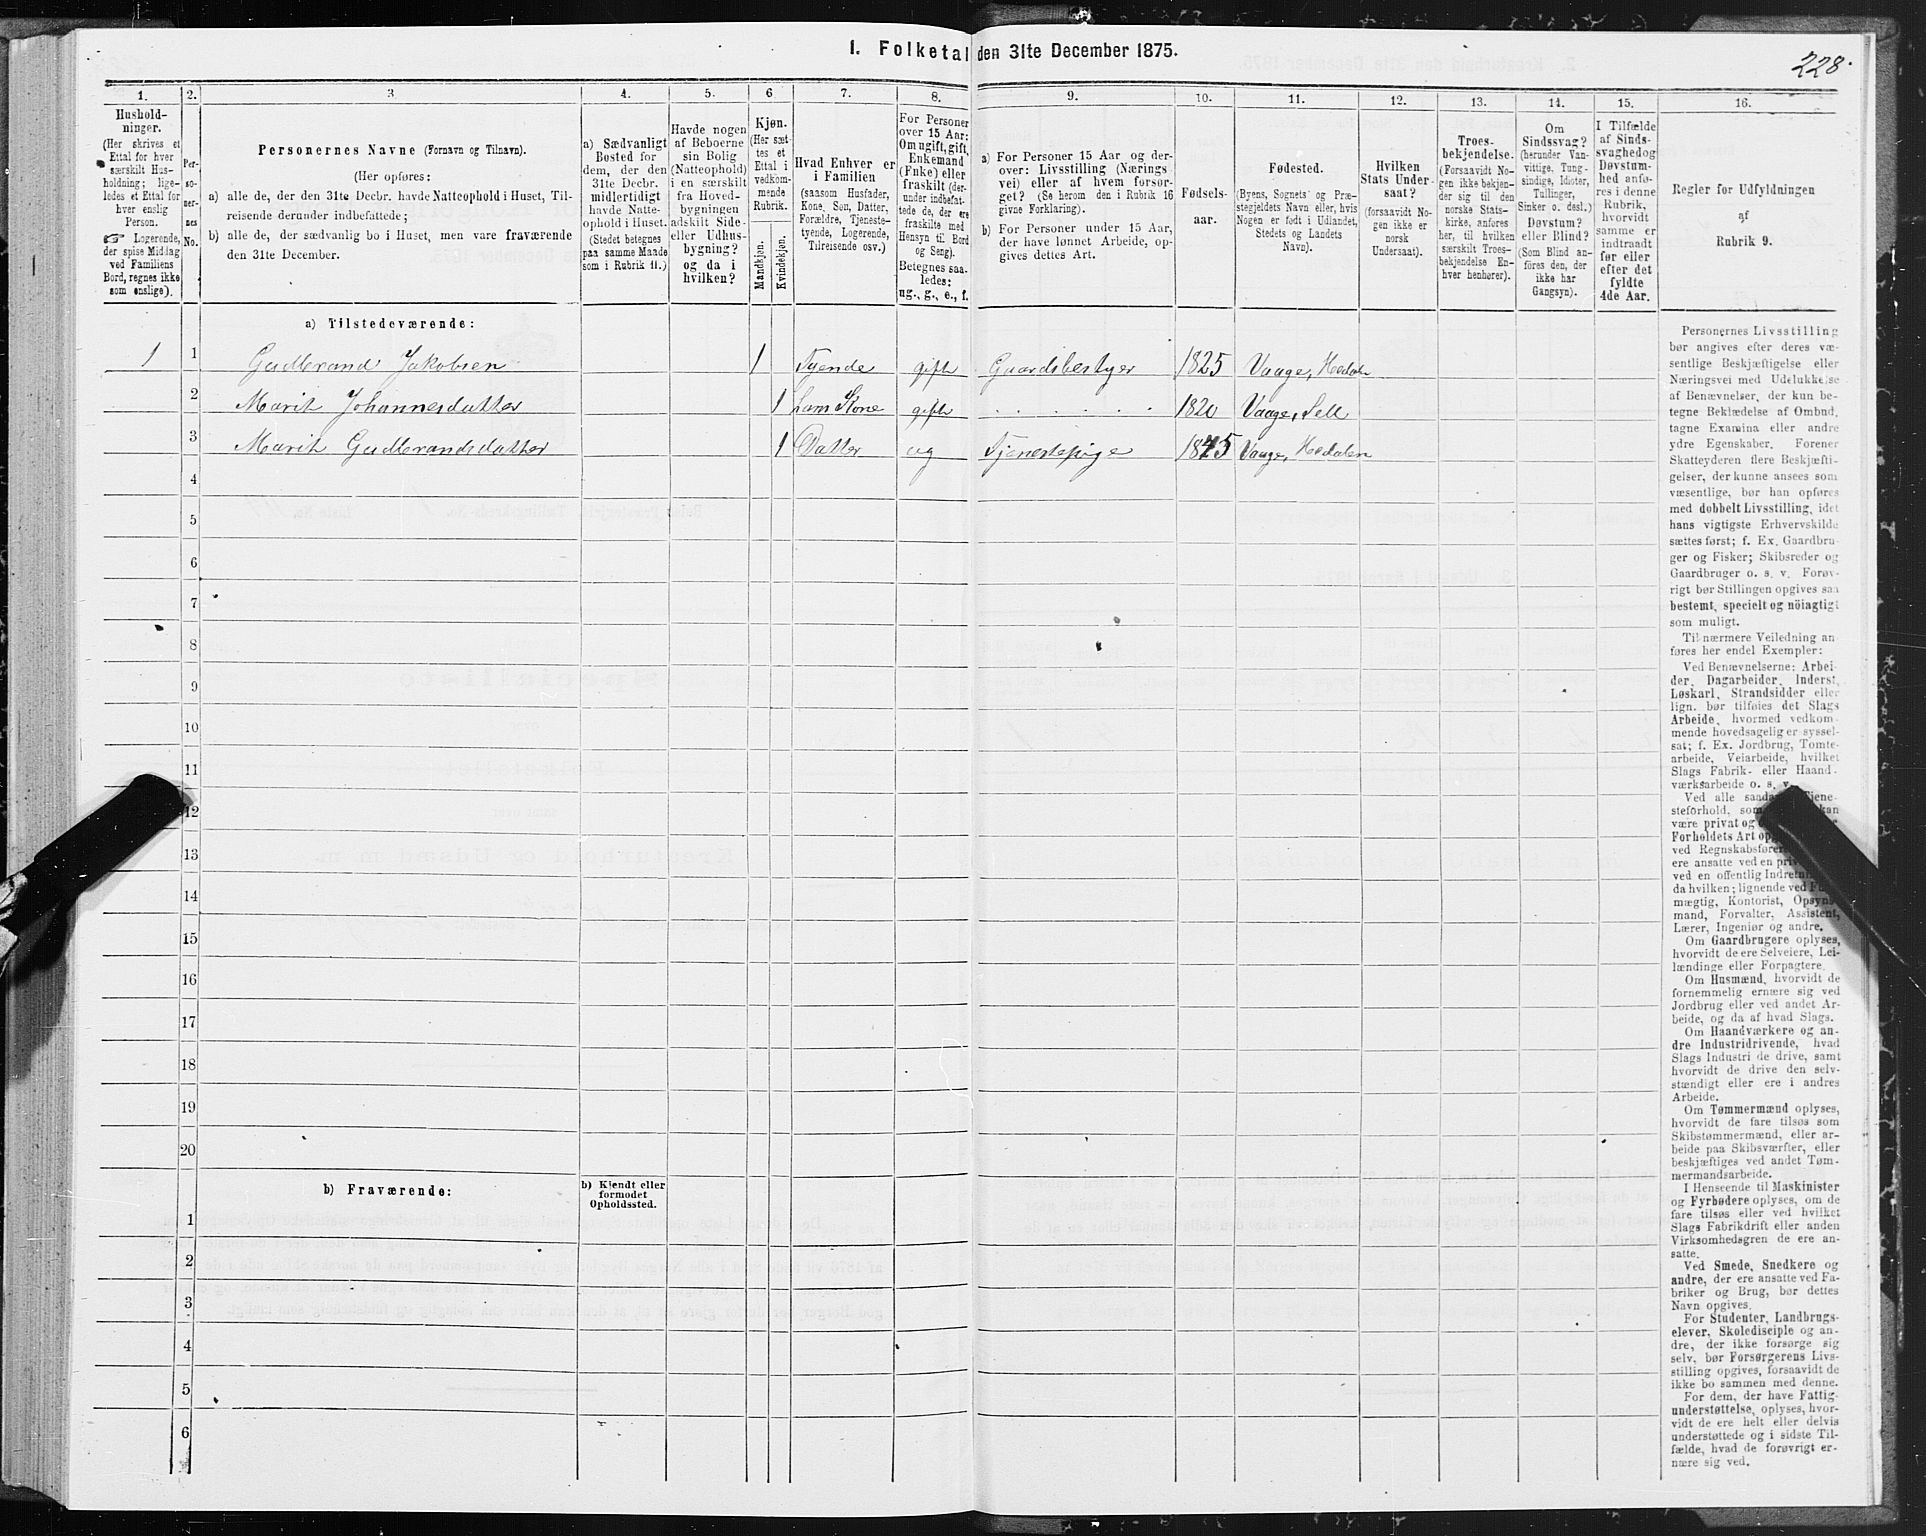 I. Folketal den 31te December 1875.
228.
1. 2. 3. 4. 5. 6 7. 8. 9. 10. 11. 12. 13. 14. 15. 16.
Hushold-
ninger.
(Her skrives et
Ettal for hver
særskilt Hus-
holdning; lige-
ledes et Ettal for
hver enslig
Person.
☞ Logerende,
der spise Middag
ved Familiens
Bord, regnes ikke
som enslige).
Per-
so-
ner-
nes
No.
Personernes Navne (Fornavn og Tilnavn).
(Her opføres:
a) alle de, der den 31te Decbr. havde Natteophold i Huset, Til-
reisende derunder indbefattede;
b) alle de, der sædvanlig bo i Huset, men vare fraværende
den 31te December.
a) Sædvanligt
Bosted for
dem, der den
31te Decbr.
midlertidigt
havde Natte-
ophold i Huset.
(Stedet betegnes
paa samme Maade
som i Rubrik 11.)
Havde nogen
af Beboerne
sin Bolig
(Natteophold)
i en særskilt
fra Hoved-
bygningen
adskilt Side-
eller Udhus-
bygning?
og da i
hvilken?
Kjøn.
(Her sæt-
tes et
Ettal i
vedkom-
mende
Rubrik.
Mandkjøn.
Kvindekjøn.
Hvad Enhver er
i Familien
(saasom Husfader,
Kone, Søn, Datter,
Forældre, Tjeneste-
tyende, Logerende,
Tilreisende osv.)
For Personer
over 15 Aar:
Om ugift, gift,
Enkemand
(Enke) eller
fraskilt (der-
under indbefat-
tede de, der ere
fraskilte med
Hensyn til Bord
og Seng).
Betegnes saa-
ledes:
ug., g., e., f.
a) For Personer 15 Aar og der-
over: Livsstilling (Nærings
vei) eller af hvem forsør-
get? (Se herom den i Rubrik 16
givne Forklaring).
b) For Personer under 15 Aar,
der have lønnet Arbeide, op-
gives dettes Art.
Fødsels-
aar.
Fødested.
(Byens, Sognets og Præ-
stegjeldets Navn eller, hvis
Nogen er født i Udlandet,
Stedets og Landets
Navn).
Hvilken
Stats Under-
saat?
(forsaavidt No-
gen ikke er
norsk
Undersaat).
Troes-
bekjendelse.
(Forsaavidt No-
gen ikke bekjen-
der sig til den
norske Stats-
kirke, anføres
her, til hvilken
særskilt Troes-
bekjendelse En-
hver henhører).
Om
Sindssvag?
(herunder Van-
vittige, Tung-
sindige, Idioter,
Tullinger,
Sinker o. desl.)
Døvstum?
eller Blind?
(Som Blind an-
føres den, der
ikke har
Gangsyn).
I Tilfælde
af Sinds-
svaghed og
Døvstum-
hed anfø-
res i denne
Rubrik,
hvorvidt
samme er
indtraadt
før eller
efter det
fyldte
4de Aar.
Regler for Udfyldningen
af
Rubrik 9.
a) Tilstedeværende:
1 1 Gudbrand Jakobsen 1 Tyende gift Gaardsbestyer 1825 Vaage, Hedalen
2 Marit Johannesdatter 1 hans Kone gift 1820 Vaage, Sell
3 Marit Gudbrandsdatter 1 Datter ug Tjenestepige 1845 Vaage, Hedalen
4
5
6
7
8
9
10
11
12
13
14
15
16
17
18
19
20
b) Fraværende:
b) Kjendt eller
formodet
Opholdssted.
1
2
3
4
5
6
Personernes Livsstilling
bør angives efter deres væ-
sentlige Beskjæftigelse eller
Næringsvei med Udelukkelse
af Benævnelser, der kun be-
tegne Beklædelse af Ombud,
tagne Examina eller andre
ydre Egenskaber. Forener
Skatteyderen flere Beskjæfti-
gelser, der kunne ansees som
væsentlige, bør han opføres
med dobbelt Livsstilling, idet
hans vigtigste Erhvervskilde
sættes først; f. Ex. Gaardbru-
ger og Fisker; Skibsreder og
Gaardbruger o. s. v. Forøv-
rigt bør Stillingen opgives saa
bestemt, specielt og nöiagtigt
som muligt.
Til nærmere Veiledning an
føres her endel Exempler:
Ved Benævnelserne: Arbei-
der, Dagarbeider, Inderst,
Løskarl, Strandsidder eller
lign. bør tilføies det Slags
Arbeide, hvormed vedkom-
mende hovedsagelig er syssel-
sat; f. Ex. Jordbrug, Tomte-
arbeide, Veiarbeide, hvilket
Slags Fabrik- eller Haand-
værksarbeide o. s. v.
Ved alle saada Tjene-
steforhold, som kan
være privat og
Forholdets Art
ved Regnskabsfører
ere ansatte ved en
ved en offentlig
da hvilken; lignende ved
mægtig, Kontorist, Opsyns-
mand, Forvalter, Assistent,
Lærer, Ingeniør og andre.
Om Gaardbrugere oplyses,
hvorvidt de ere Selveiere, Lei-
lændinge eller Forpagtere.
Om Husmænd, hvorvidt de
fornemmelig ernære sig ved
Jordbrug eller ved andet Ar-
beide, og da af hvad Slags.
Om Haandværkere og an-
dre Industridrivende, hvad
Slags Industri de drive, samt
hvorvidt de drive den selv-
stændigt eller ere i andres
Arbeide.
Om Tømmermænd oplyses,
hvorvidt de fare tilsøs som
Skibstømmermænd, eller ar-
beide paa Skibsværfter, eller
beskjæftiges ved andet Tøm-
mermandsarbeide.
I Henseende til Maskinister
og Fyrbødere oplyses, om de
fare tilsøs eller ved hvilket
Slags Fabrikdrift eller anden
Virksomhedsgren de ere an-
satte.
Ved Smede, Snedkere og
andre, der ere ansatte ved Fa-
briker og Brug, bør dettes
Navn opgives.
For Studenter, Landbrugs-
elever, Skoledisciple og an-
dre, der ikke forsørge sig
selv, bør Forsørgerens Livs-
stilling opgives, forsaavidt de
ikke bo sammen med denne.
For dem, der have Fattig-
understøttelse, oplyses, hvor-
vidt de ere helt eller delvis
understøttede og i sidste Til-
fælde, hvad de forøvrigt er-
nære sig ved.